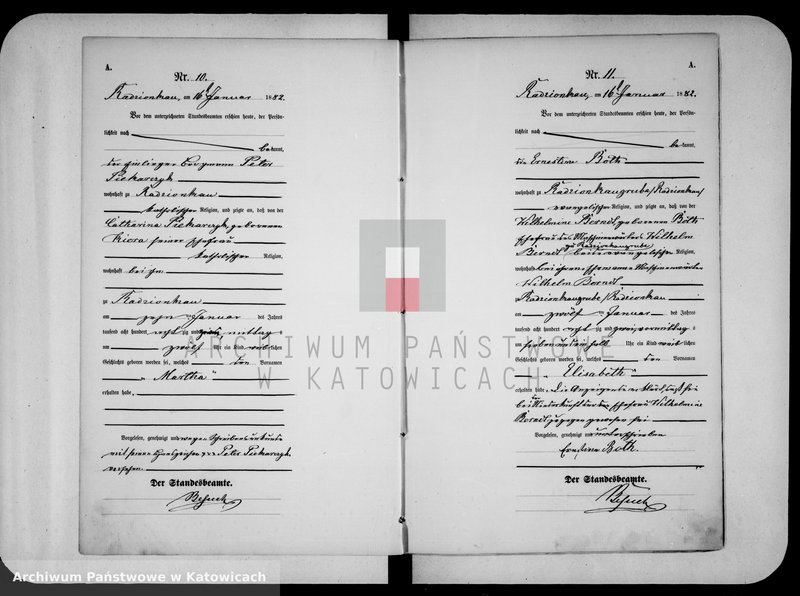 A.
Nr. 10.
Radzionkau, am 16ten Januar 1882.
Vor dem unterzeichneten Standesbeamten erschien heute, der Persön-
lichkeit nach
bekannt,
der Einlieger Bergmann Peter
Piekarczyk
wohnhaft zu Radzionkau
katholischer Religion, und zeigte an, daß von der
Catharina Piekarczyk geborenen
Kiora seiner Ehefrau
katholischer Religion,
wohnhaft bei ihm
zu Radzionkau
am zehn ten Januar des Jahres
tausend acht hundert acht zig und zwei mittag s
um zwölf Uhr ein Kind weiblichen
Geschlechts geboren worden sei, welches den Vornamen
„Martha"
erhalten habe.
Vorgelesen, genehmigt und wegen Schreibensunkunde
mit seinem Handzeichen Peter Piekarczyk
versehen.
Der Standesbeamte.
A.
Nr. 11.
Radzionkau, am 16ten Januar 1882.
Vor dem unterzeichneten Standesbeamten erschien heute, der Persön-
lichkeit nach
bekannt,
die Ernestine Both
wohnhaft zu Radzionkaugrube/Radzionkau/
evangelischer Religion, und zeigte an, daß von der
Wilhelmine Berndl geborenen Both
Ehefrau des Maschinenwärters Wilhelm
zu Radzionkaugrube
Berndl beide evangelischer Religion,
wohnhaft bei ihrem Ehemanne Maschinenwärter
Wilhelm Berndl
zu Radzionkaugrube/Radzionkau
am zwölf ten Januar des Jahres
tausend acht hundert acht zig und zwei vormittag s
um sieben und ein halb Uhr ein Kind weiblichen
Geschlechts geboren worden sei, welches den Vornamen
„Elisabeth"
erhalten habe. Die Anzeigende erklärt, daß sie
bei Niederkunft der Ehefrau Wilhelmine
Berndl zugegen gewesen sei
Vorgelesen, genehmigt und unterschrieben
Ernestine Both.
Der Standesbeamte.
ARCHIWUM PAŃSTWOWE
W KATOWICACH
Archiwum Państwowe w Katowicach